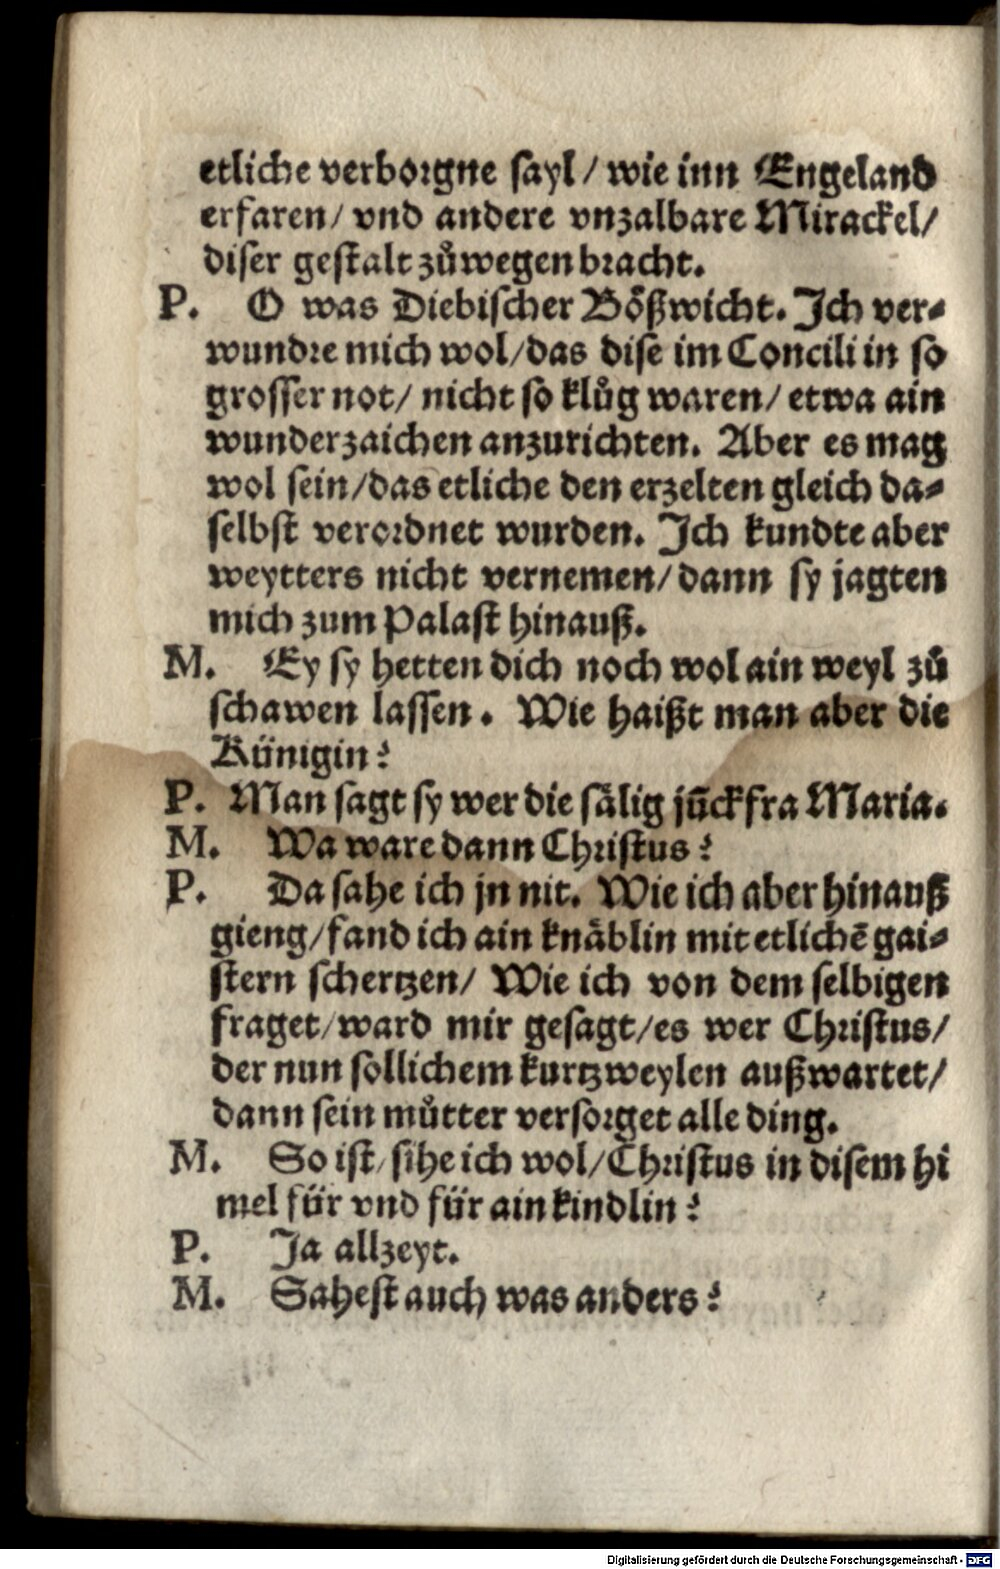 etliche verborgne sayl / wie inn Engeland
erfaren / vnd andere vnzalbare Mirackel /
diser gestalt zůwegen bracht.
P. O was Diebischer Bößwicht. Ich ver-
wundre mich wol / das dise im Concili in so
grosser not / nicht so klůg waren / etwa ain
wunderzaichen anzurichten. Aber es mag
wol sein / das etliche den erzelten gleich da-
selbst verordnet wurden. Ich kundte aber
weytters nicht vernemen / dann sy jagten
mich zum Palast hinauß.
M. Ey sy hetten dich noch wol ain weyl zů
schawen lassen. Wie haißt man aber die
Künigin?
P. Man sagt sy wer die sälig jūckfra Maria.
M. Wa ware dann Christus?
P. Da sahe ich jn nit. Wie ich aber hinauß
gieng / fand ich ain knäblin mit etlichē gai-
stern schertzen / Wie ich von dem selbigen
fraget / ward mir gesagt / es wer Christus /
der nun sollichem kurtzweylen außwartet /
dann sein můtter versorget alle ding.
M. So ist / sihe ich wol / Christus in disem hi
mel für vnd für ain kindlin?
P. Ja allzeyt.
M. Sahest auch was anders?
Digitalisierung gefördert durch die Deutsche Forschungsgemeinschaft - DFG